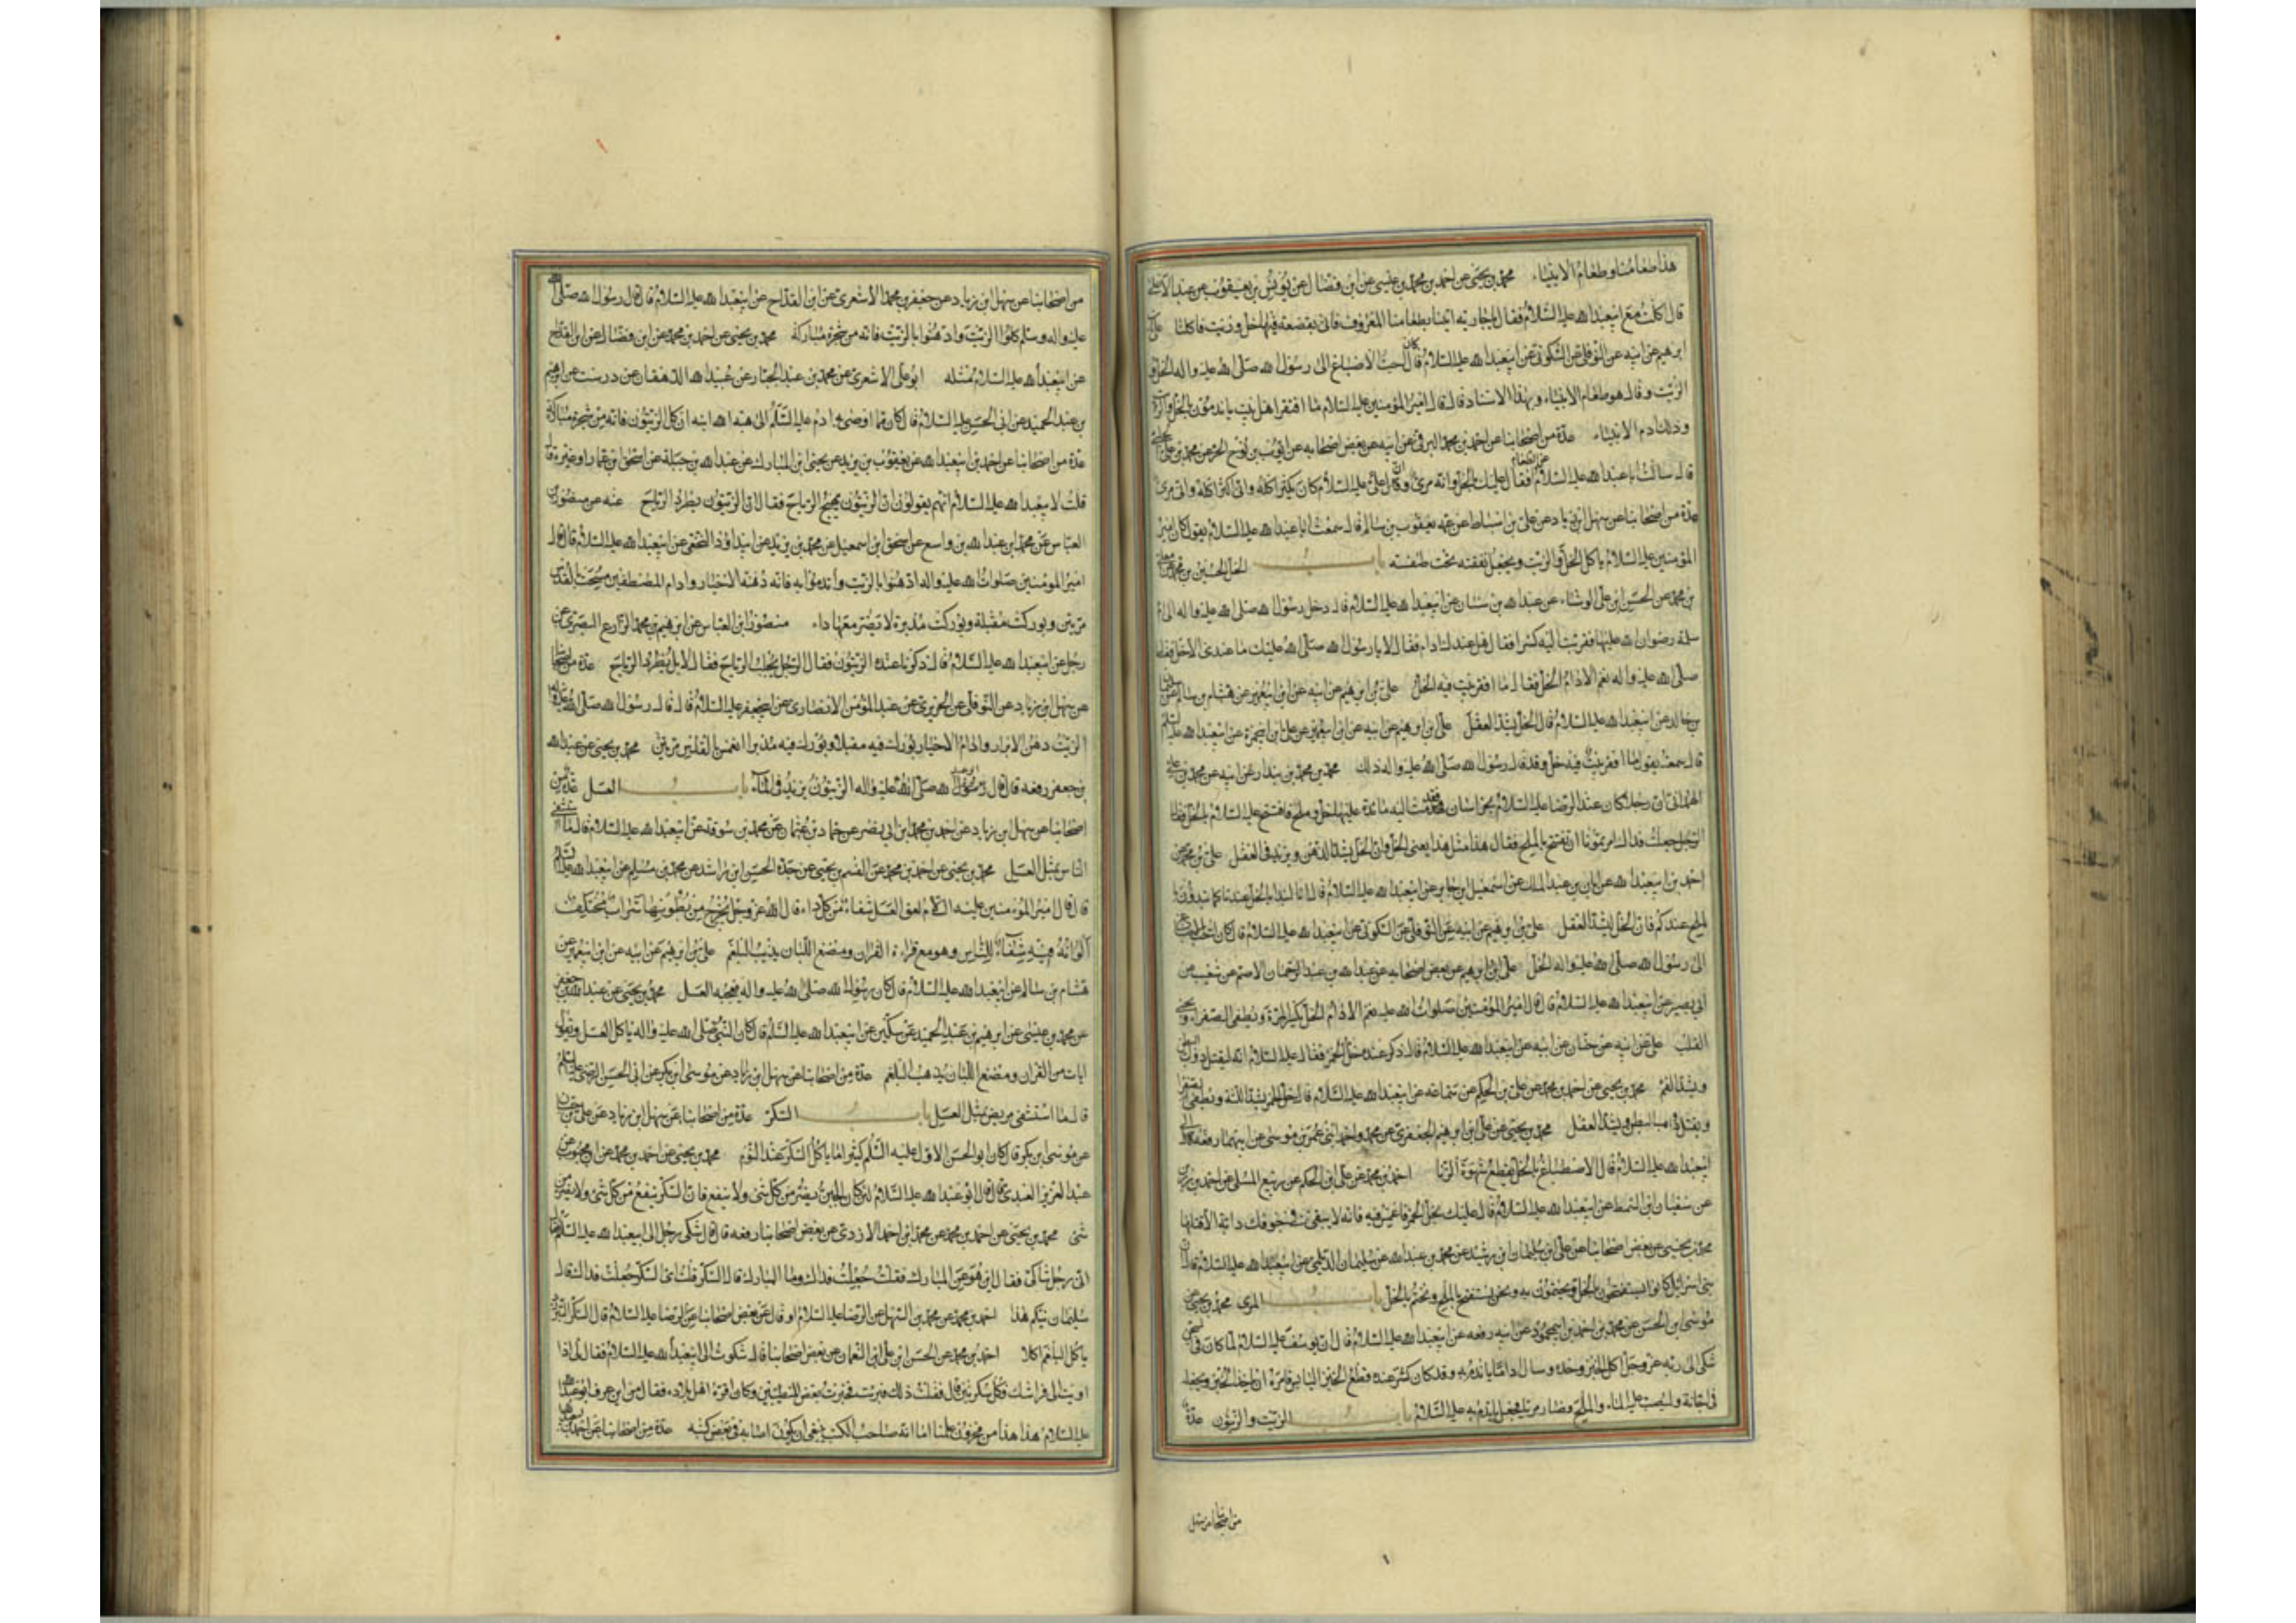 هذا طعامنا وطعام الانبياء محمد بن يحيى عن احمد بن محمد بن عيسى عن ابن فضال عن يونس بن يعقوب عن عبد الاعلى
قال اكلت مع ابيعبدا لله عليه السلام فقال يا جاريه ايتنا بطعامنا المعروف فاتى بقصعة فيها خل وزيت فاكلنا على بن
ابرهيم عن ابيه عن النوفلى عن السكونى عن ابيعبدا لله عليه السلام قال كان احب الاصباغ الى رسول الله صلى الله عليه واله الخل و
الزيت وقال هو طعام الانبياء وبهذا الاسناد قال قال امير المؤمنين عليه السلام ما افتقر اهل بيت ياتدمون بالخل والزيت
وذلك ادم الانبياء عدة من اصحابنا عن احمد بن محمد البرقى عن ابيه عن بعض اصحابه عن ايوب بن الحر عن محمد بن على الحلبى
قال سالت ابا عبدا لله عليه السلام عن الطعام فقال عليك بالخل والزيت فانه مرئ وان عليا عليه السلام كان يكثر اكله وانى اكثر اكله وانه مرئ
عدة من اصحابنا عن سهل ابن زياد عن على بن اسباط عن عمه يعقوب بن سالم قال سمعت ابا عبدا لله عليه السلام يقول كان امير
المؤمنين عليه السلام ياكل الخل والزيت ويجعل نفقته تحت طنفسته باب الخل الحسين بن محمد عن معلى
بن محمد عن الحسن ابن على الوشاء عن عبدا لله بن سنان عن ابيعبدا لله عليه السلام قال دخل رسول الله صلى الله عليه واله الى ام
سلمة رضوان الله عليها فقربت اليه كسرا فقال هل عندك ادام فقال لا يا رسول الله صلى الله عليك ما عندى الا خل فقال
صلى الله عليه واله نعم الادام الخل فقال ما افقر بيت فيه الخل على بن ابرهيم عن ابيه عن ابن ابيعمير عن هشام بن سالم عن سليمان
بن خالد عن ابيعبدا لله عليه السلام قال الخل يشد العقل على بن ابرهيم عن ابيه عن ابن ابيعمير عن على ابن ابيحمزة عن ابيعبدا لله عليه السلم
قال سمعته يقول ما افقر بيت فيه خل وقد قال رسول الله صلى الله عليه واله ذلك محمد بن محمد بن بندار عن ابيه عن محمد بن على
الهمدانى ان رجلا كان عند الرضا عليه السلام بخراسان فقدمت اليه مائدة عليها خل وملح فافتتح عليه السلام بالخل فقال
الرجل جعلت فداك امرتمونا ان نفتتح بالملح فقال هذا مثل هذا يعنى الخل وان الخل يشد الذهن ويزيد فى العقل على بن محمد عن
احمد بن ابيعبدا لله عن ابان بن عبد الملك عن اسمعيل ابن جابر عن ابيعبدا لله عليه السلام قال انا لنبدا بالخل عندنا كما تبدؤن
بالملح عندكم فان الخل ليشد العقل على بن ابرهيم عن ابيه عن النوفلى عن السكونى عن ابيعبدا لله عليه السلام قال كان احب الصباغ
الى رسول الله صلى الله عليه واله الخل على ابن ابرهيم عن بعض اصحابه عن عبدا لله بن عبد الرحمان الاصم عن شعيب عن
ابى بصير عن ابيعبدا لله عليه السلام قال قال امير المؤمنين صلوات الله عليه نعم الادام الخل يكسر المرة ويطفى الصفراء ويحيى
القلب على عن ابيه عن حنان عن ابيه عن ابيعبدا لله عليه السلام قال ذكر عنده خل الخمر فقال عليه السلام انه ليقتل دواب البطن
ويشد الفم محمد بن يحيى عن احمد بن محمد عن على بن الحكم عن سماعه عن ابيعبدا لله عليه السلام قال خل الخمر يشد اللثة
ويقتل دواب البطن ويشد العقل محمد بن يحيى عن على ابن ابرهيم الجعفرى عن محمد واحمد ابنى عمر بن موسى عن ابيهما رفعه الى
ابيعبدا لله عليه السلام قال الاصطباغ بالخل يقطع شهوة الزنا احمد بن محمد عن على ابن الحكم عن ربيع المسلى عن احمد بن رزين
عن سفيان ابن السمط عن ابيعبدا لله عليه السلام قال عليك بخل الخمر فاغمس فيه فانه لا يبقى فى جوفك دابة الا قتلها
محمد بن يحيى عن بعض اصحابنا عن على ابن سليمان ابن رشيد عن محمد بن عبدا لله عن سليمان الديلمى عن ابيعبدا لله عليه السلام قال ان
بنى اسرائيل كانوا يستفتحون بالخل ويختمون به ونحن نستفتح بالملح ونختم بالخل باب المرى محمد بن يحيى عن
موسى ابن الحسن عن محمد بن احمد بن ابيمحمود عن ابيه رفعه عن ابيعبدا لله عليه السلام قال ان يوسف عليه السلام لما كان فى السجن
شكى الى ربه عز وجل اكل الخبز وحده وسال داما ياتدم به وقد كان كثر عنده قطع الخبز اليابس فامره ان ياخذ الخبز ويجعله
فى اجانة ويصب عليه الماء والملح فصار مريا فجعل ياتدم به عليه السلام باب الزيت والزيتون عدة
من اصحابنا عن سهل
من اصحابنا عن سهل ابن زياد عن جعفر بن محمد الاشعرى عن ابن القداح عن ابيعبدا لله عليه السلام قال قال رسول الله صلى الله
عليه واله وسلم كلوا الزيت وادهنوا بالزيت فانه من شجرة مباركة محمد بن يحيى عن احمد بن محمد عن ابن فضال عن ابن القداح
عن ابيعبدا لله عليه السلام مثله ابو على الاشعرى عن محمد بن عبد الجبار عن عبيدا لله الدهقان عن درست عن ابرهيم
بن عبد الحميد عن ابى الحسن عليه السلام قال كان مما اوصى به ادم عليه السلم الى هبة الله ابنه ان كل الزيتون فانه من شجرة مباركة
عدة من اصحابنا عن احمد بن ابيعبدا لله عن يعقوب بن يزيد عن يحيى ابن المبارك عن عبدا لله بن جبلة عن اسحق ابن عمار او غيره قال
قلت لابيعبدا لله عليه السلام انهم يقولون ان الزيتون يهيج الرياح فقال ان الزيتون يطرد الرياح عنه عن منصور بن
العباس عن محمد ابن عبدا لله بن واسع عن اسحق ابن اسمعيل عن محمد بن يزيد عن ابيداود النخعى عن ابيعبدا لله عليه السلام قال قال
امير المؤمنين صلوات الله عليه واله ادهنوا بالزيت وأتدموا به فانه دهنه الاخيار وادام المصطفين مسحت بالقدس
مرتين وبوركت مقبلة وبوركت مدبرة لا تضر معها داء منصور ابن العباس عن ابرهيم بن محمد الزارع البصرى عن
رجل عن ابيعبدا لله عليه السلام قال ذكرنا عنده الزيتون فقال الرجل يجلب الرياح فقال لا بل يطرد الرياح عدة من اصحابنا
عن سهل ابن زياد عن النوفلى عن الجريرى عن عبد المؤمن الانصارى عن ابيجعفر عليه السلام قال قال رسول الله صلى الله عليه واله
الزيت دهن الابرار وادام الاخيار بورك فيه مقبلا وبورك فيه مدبرا انغمس بالقدس مرتين محمد بن يحيى عن عبدا لله
بن جعفر رفعه قال قال رسول الله صلى الله عليه واله الزيتون يزيد فى الماء باب العسل عدة من
اصحابنا عن سهل بن زياد عن احمد بن محمد ابن ابى نصر عن حماد بن عثمان عن محمد بن سوقه عن ابيعبدا لله عليه السلام قال ما استشفى
الناس بمثل العسل محمد بن يحيى عن احمد بن محمد عن القسم بن يحيى عن جده الحسن ابن راشد عن محمد بن مسلم عن ابيعبدا لله عليه السلم
قال قال امير المؤمنين عليه السلام لعق العسل شفاء من كل داء قال الله عز وجل يخرج من بطونها شراب مختلف
الوانه فيه شفاء للناس وهو مع قراءة القران ومضغ اللبان يذيب البلغم على بن ابرهيم عن ابيه عن ابن ابيعمير عن
هشام بن سالم عن ابيعبدا لله عليه السلام قال كان رسول الله صلى الله عليه واله يعجبه العسل محمد بن يحيى عن عبدا لله بن جعفر
عن محمد بن عيسى عن ابرهيم بن عبد الحميد عن سكين عن ابيعبدا لله عليه السلام قال كان النبى صلى الله عليه واله ياكل العسل ويقول
ايات من القران ومضغ اللبان يذهب البلغم عدة من اصحابنا عن سهل ابن زياد عن موسى ابن بكر عن ابى الحسن الرضى عليه السلم
قال ما استشفى مريض بمثل العسل باب السكر عدة من اصحابنا عن سهل ابن زياد عن على بن حسان
عن موسى ابن بكر قال كان ابو الحسن الاول عليه السلم كثيرا ما ياكل السكر عند النوم محمد بن يحيى عن احمد بن محمد عن ابن محبوب عن
عبد العزيز العبدى قال قال ابو عبدا لله عليه السلام لئن كان الجبن يضر من كل شئ ولا ينفع فان السكر ينفع من كل شئ ولا يضر من
شئ محمد بن يحيى عن احمد بن محمد عن محمد ابن احمد الازدى عن بعض اصحابنا رفعه قال قال شكى رجل الى ابيعبدا لله عليه السلام فقال
انى رجل شاكى فقال اين هو عن المبارك فقلت جعلت فداك وما المبارك قال السكر قلت اى السكر جعلت فداك قال
سليمان نيكم هذا احمد بن محمد عن محمد بن السهل عن الرضا عليه السلام او قال عن بعض اصحابنا عن الرضا عليه السلام قال السكر الطبرزد
ياكل البلغم اكلا احمد بن محمد عن الحسن ابن على ابن النعمان عن بعض اصحابنا قال شكوت الى ابيعبدا لله عليه السلام فقال لى اذا
اويت الى فراشك فكل سكرتين قال ففعلت ذلك فبريت فخبرت بعض المتطببين وكان افره اهل بلاده فقال من اين عرف ابو عبدا لله
عليه السلام هذا هذا من مخزون علمنا اما انه صاحب الكتب ينبغى ان يكون اصابه فى بعض كتبه عدة من اصحابنا عن احمد بن